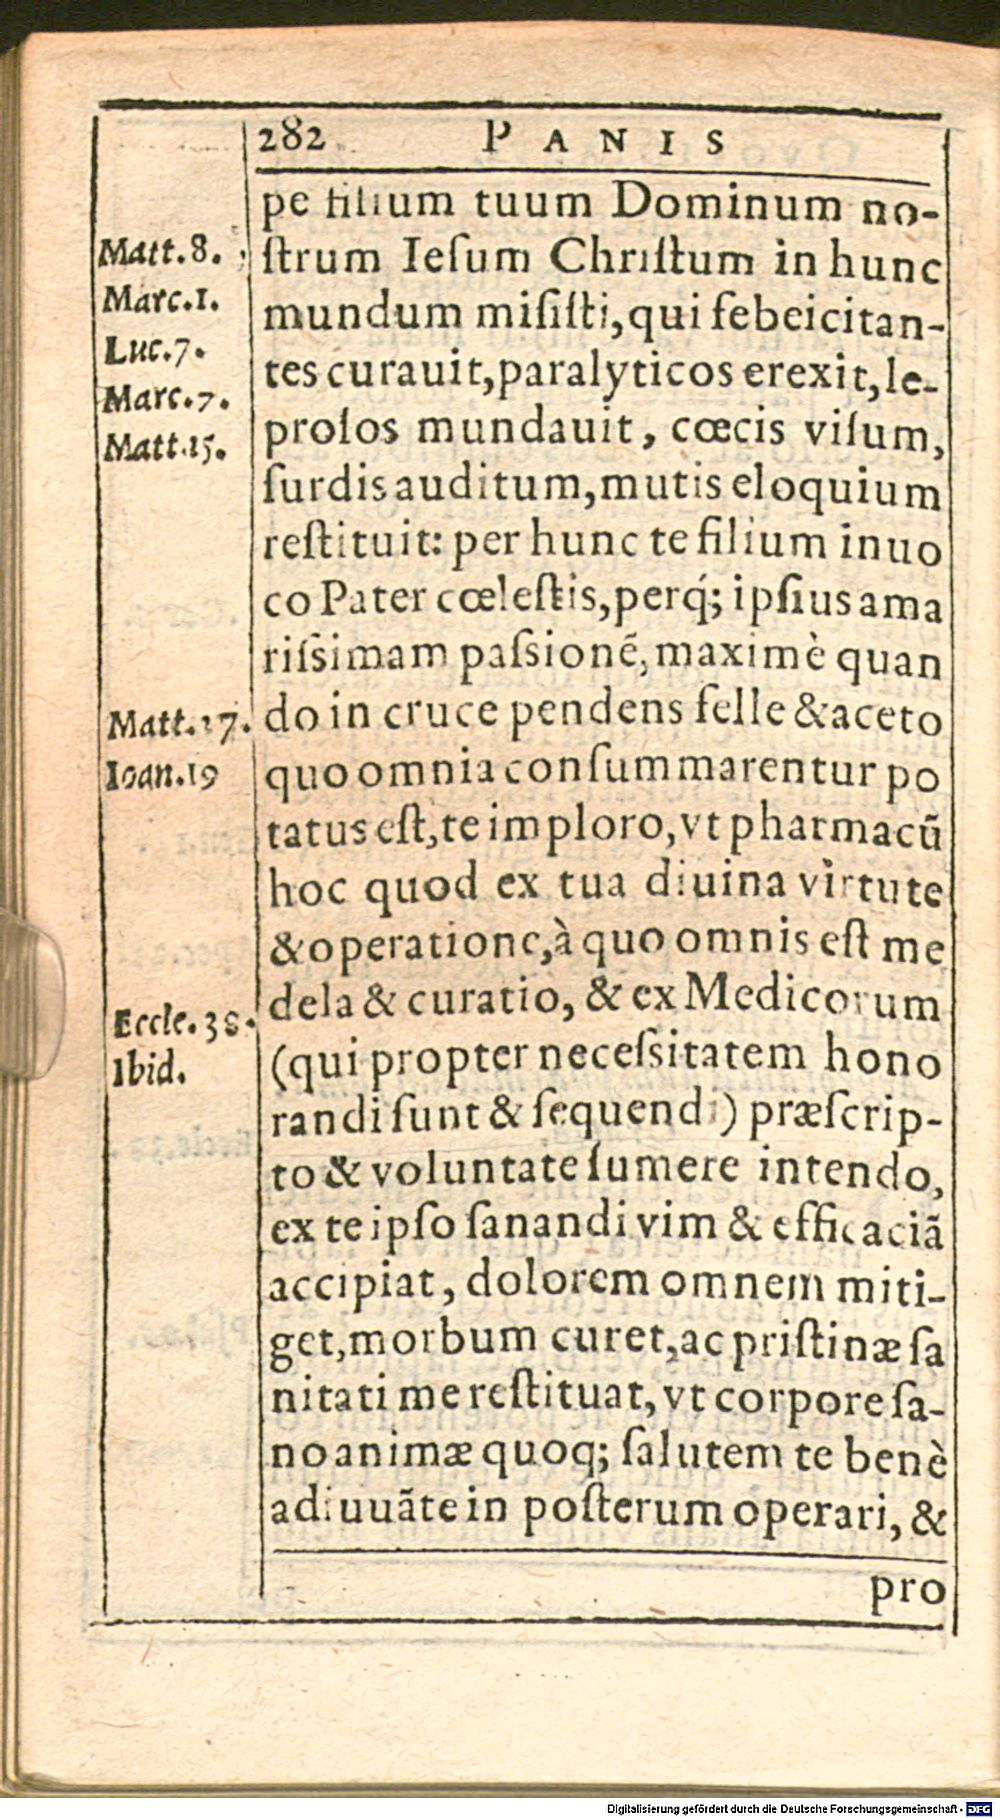 282 PANIS
pe filium tuum Dominum no-
ſtrum Ieſum Chriſtum in hunc
mundum miſiſti, qui febeicitan-
tes curauit, paralyticos erexit, le-
proſos mundauit, cœcis viſum,
ſurdis auditum, mutis eloquium
reſtituit: per hunc te filium inuo
co Pater cœleſtis, perq́; ipſius ama
riſsimam paſsionẽ, maximè quan
do in cruce pendens felle & aceto
quo omnia conſummarentur po
tatus eſt, te imploro, vt pharmacũ
hoc quod ex tua diuina virtute
& operatione, à quo omnis eſt me
dela & curatio, & ex Medicorum
(qui propter neceſsitatem hono
randi ſunt & ſequendi) præſcrip-
to & voluntate ſumere intendo,
ex te ipſo ſanandi vim & efficaciã
accipiat, dolorem omnem miti-
get, morbum curet, ac priſtinæ ſa
nitati me reſtituat, vt corpore ſa-
no animæ quoq; ſalutem te benè
adiuuãte in poſterum operari, &
pro
Matt. 8.
Marc. 1.
Luc. 7.
Marc. 7.
Matt. 15.
Matt. 27.
Ioan. 19
Eccle. 38.
Ibid.
Digitalisierung gefördert durch die Deutsche Forschungsgemeinschaft - DFG